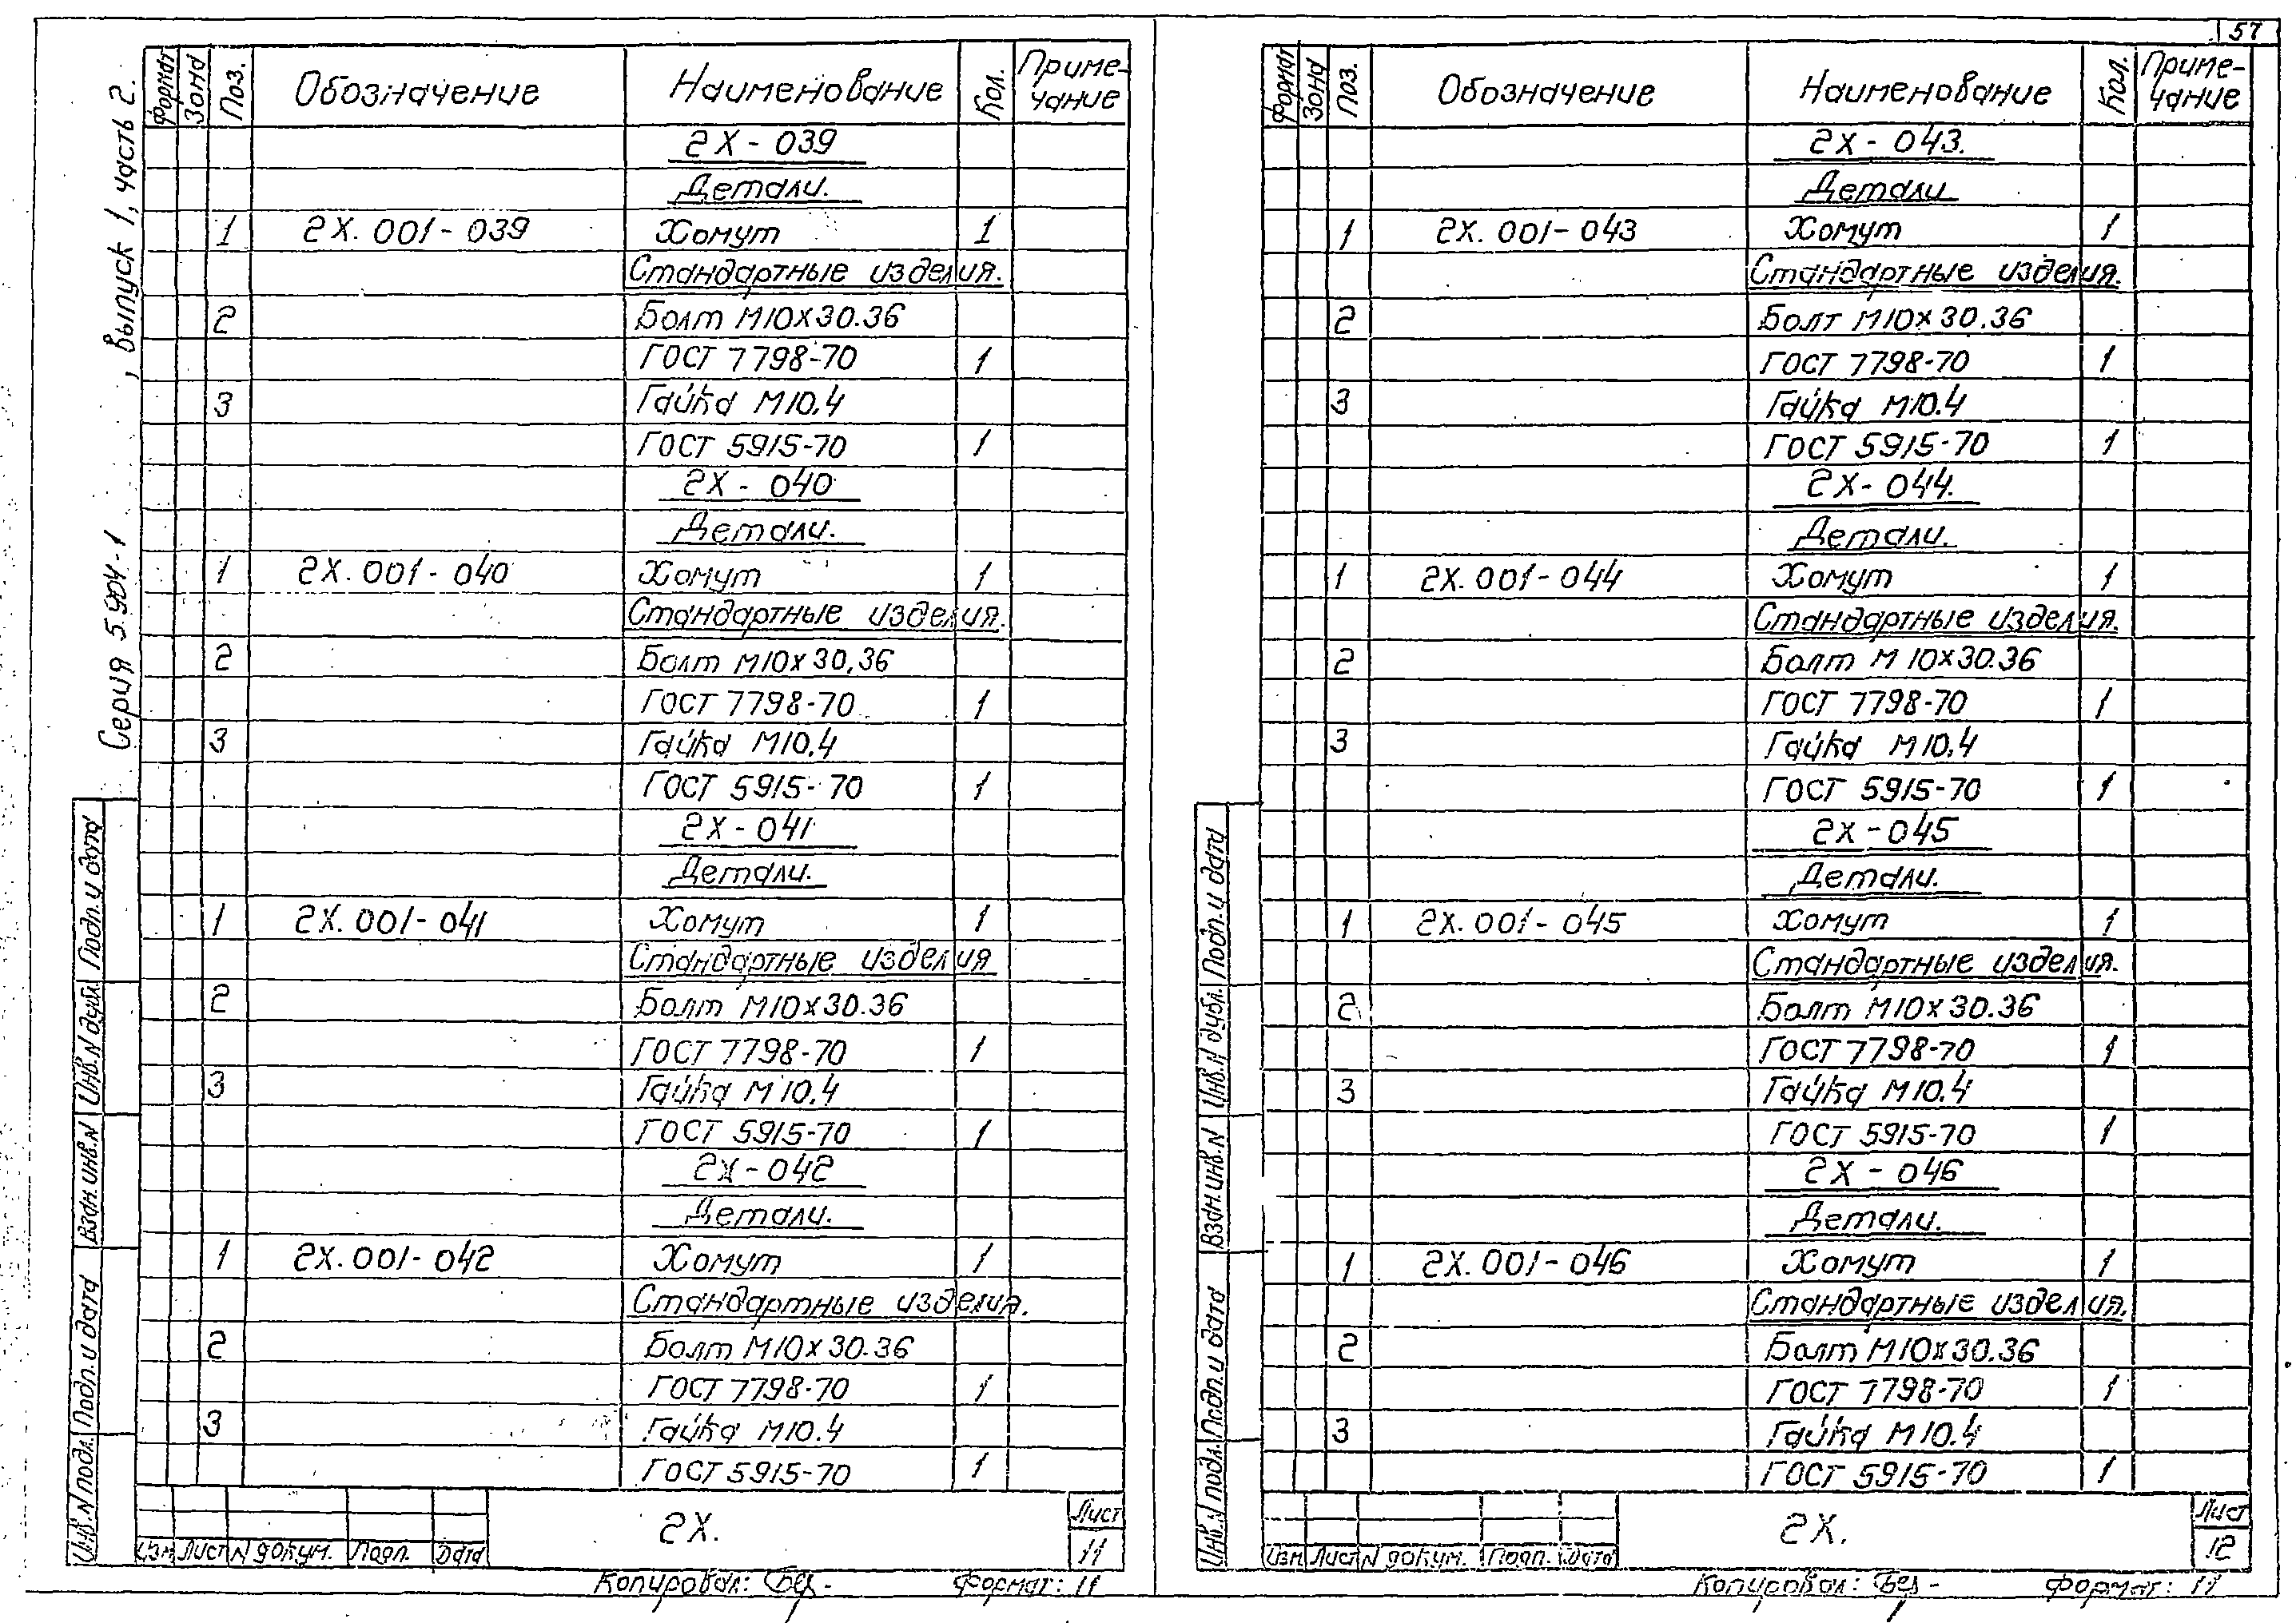 57
Серия 5.904-1 , выпуск 1, часть 2.
Формат Зона Поз. Обозначение Наименование Кол. Приме-
чание
2Х - 039
Детали.
1 2Х. 001 - 039 Хомут 1
Стандартные изделия.
2 Болт М10х30.36
ГОСТ 7798-70 1
3 Гайка М10.4
ГОСТ 5915-70 1
2Х - 040
Детали.
1 2Х. 001 - 040 Хомут 1
Стандартные изделия.
2 Болт М10х30,36
ГОСТ 7798-70 1
3 Гайка М10.4
ГОСТ 5915-70 1
2Х - 041
Детали.
1 2Х. 001 - 041 Хомут 1
Стандартные изделия
2 Болт М10х30.36
ГОСТ 7798-70 1
3 Гайка М10.4
ГОСТ 5915-70 1
2Х - 042
Детали.
1 2Х. 001 - 042 Хомут 1
Стандартные изделия.
2 Болт М10х30.36
ГОСТ 7798-70 1
3 Гайка М10.4
ГОСТ 5915-70 1
Инв. N подл. Подп. и дата Взам. инв. N Инв. N дубл. Подп. и дата
2Х.
Лист
11
Изм Лист N докум. Подп. Дата
Копировал: Формат: 11
Формат Зона Поз. Обозначение Наименование Кол. Приме-
чание
2Х - 043.
Детали
1 2Х. 001 - 043 Хомут 1
Стандартные изделия.
2 Болт М10х30.36
ГОСТ 7798-70 1
3 Гайка М10.4
ГОСТ 5915-70 1
2Х - 044.
Детали.
1 2Х. 001 - 044 Хомут 1
Стандартные изделия.
2 Болт М10х30.36
ГОСТ 7798-70 1
3 Гайка М10.4
ГОСТ 5915-70 1
2Х - 045
Детали.
1 2Х. 001 - 045 Хомут 1
Стандартные изделия.
2 Болт М10х30.36
ГОСТ 7798-70 1
3 Гайка М10.4
ГОСТ 5915-70 1
2Х - 046
Детали.
1 2Х. 001 - 046 Хомут 1
Стандартные изделия.
2 Болт М10х30.36
ГОСТ 7798-70 1
3 Гайка М10.4
ГОСТ 5915-70 1
Инв. N подл. Подп. и дата Взам. инв. N Инв. N дубл. Подп. и дата
2Х.
Лист
12
Изм Лист N докум. Подп. Дата
Копировал: Формат: 11